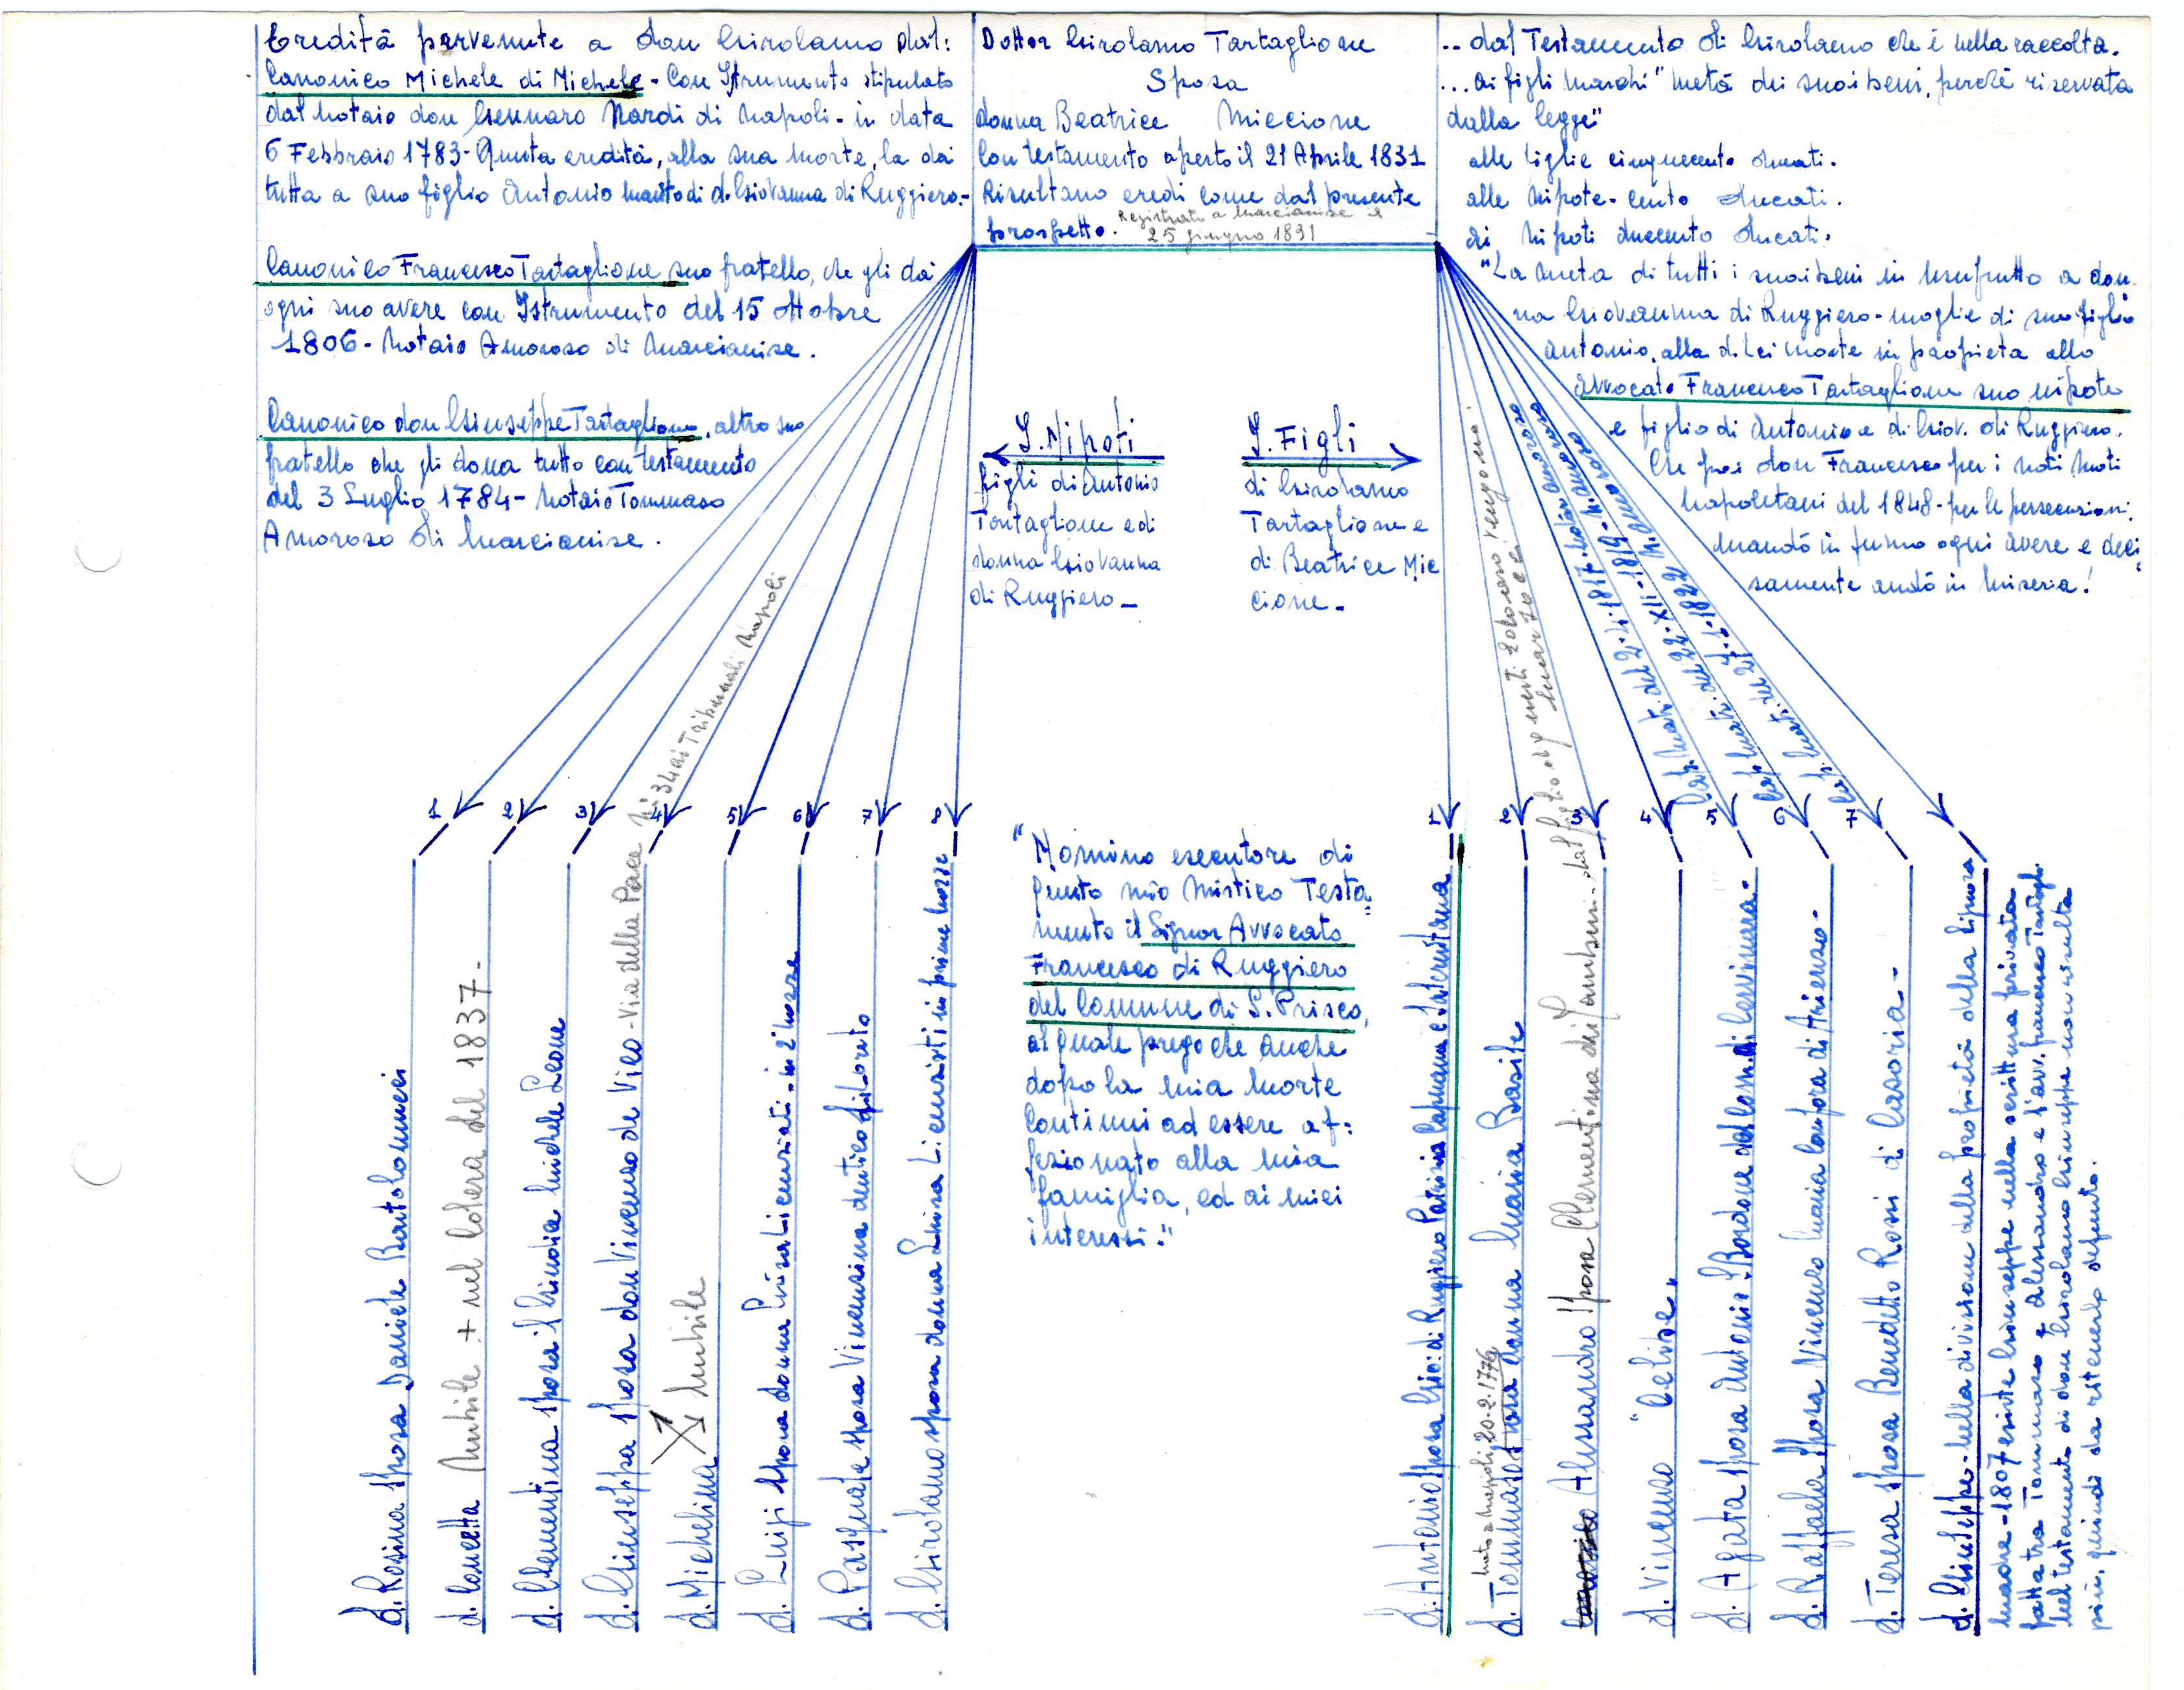 Eredità pervenute a don Girolamo dal:
Canonico Michele di Michele - Con Istrumento stipulato
dal notaio don Gennaro Nardi di Napoli - in data
6 Febbraio 1783 - Questa eredità, alla sua morte, la dà
tutta a suo figlio Antonio marito di d. Giovanna di Ruggiero.-
Canonico Francesco Tartaglione suo fratello, che gli dà
ogni suo avere con Istrumento del 15 ottobre
1806 - Notaio Amoroso di Marcianise.
Canonico don Giuseppe Tartaglione, altro suo
fratello che gli dona tutto con testamento
del 3 Luglio 1784 - Notaio Tommaso
Amoroso di Marcianise.
Dottor Girolamo Tartaglione
Sposa
donna Beatrice Miccione
Con testamento aperto il 21 Aprile 1831
Risultano eredi come dal presente
prospetto.
Registrato a Marcianise il
25 giugno 1831
.. dal Testamento di Girolamo che è nella raccolta.
... ai figli maschi "metà dei suoi beni, perchè riservata
dalla legge"
alle figlie cinquecento ducati.
alle nipote - cento ducati.
ai nipoti duecento ducati.
"La metà di tutti i suoi beni in usufrutto a don
na Giovanna di Ruggiero - moglie di suo figlio
Antonio, alla di lei morte in proprietà allo
Avvocato Francesco Tartaglione suo nipote
e figlio di Antonio e di Giov. di Ruggiero.
Che poi don Francesco per i noti moti
napoletani del 1848 - per le persecuzioni,
mandò in fumo ogni avere e deci
samente andò in miseria!
I. Nipoti
figli di Antonio
Tartaglione e di
donna Giovanna
di Ruggiero -
I. Figli
di Girolamo
Tartaglione e
di Beatrice Mic
cione -
"Nomino esecutore di
questo mio mistico Testa
mento il Signor Avvocato
Francesco di Ruggiero
del Comune di S. Prisco,
al quale prego che anche
dopo la mia morte
continui ad essere af:
fezionato alla mia
famiglia, ed ai miei
interessi."
1 2 3 4 5 6 7 8
d. Rosina sposa Daniele Bartolomuci
d. Concetta Nubile + nel Colera del 1837 -
d. Clementina sposa il Giudice Michele Leone
d. Giuseppa sposa don Vincenzo de Vico - Via della Pace N: 34 ai Tribunali Napoli
d. Michelina Nubile
d. Luigi sposa donna Luisa Licenziati - in 2° nozze
d. Pasquale sposa Vincenzina dentice di Loreto
d. Girolamo sposa donna Luisa Licenziati in prime nozze
1 2 3 4 5 6 7
d. Antonio sposa Gio: di Ruggiero Patrizia Capuana e Salernitana
nato a Napoli, 20-2-1776
d. Tommaso sposa donna Maria Basile
Alessandro sposa Clementina
d. Vincenzo "Celibe"
d. Agata sposa Antonio Bordone del Com. di Cervinara -
Cap. Matr. del 2-4-1817 - Notar Amoroso
d. Raffaela sposa Vincenzo Maria Confora di Arienzo -
Cap. Matr. del 22-XII-1819 - N. Amoroso
d. Teresa sposa Benedetto Rossi di Casoria -
Cap. Matr. del 21 1822 N. Amoroso
d. Giuseppe - nella divisione della proprietà della Signora
Madre - 1807 esiste Giuseppe nella scrittura privata
fatta tra Tommaso e Alessandro e l'avv. Francesco Tartagl.
Nel testamento di don Girolamo Giuseppe non risulta
più, quindi da ritenerlo defunto.